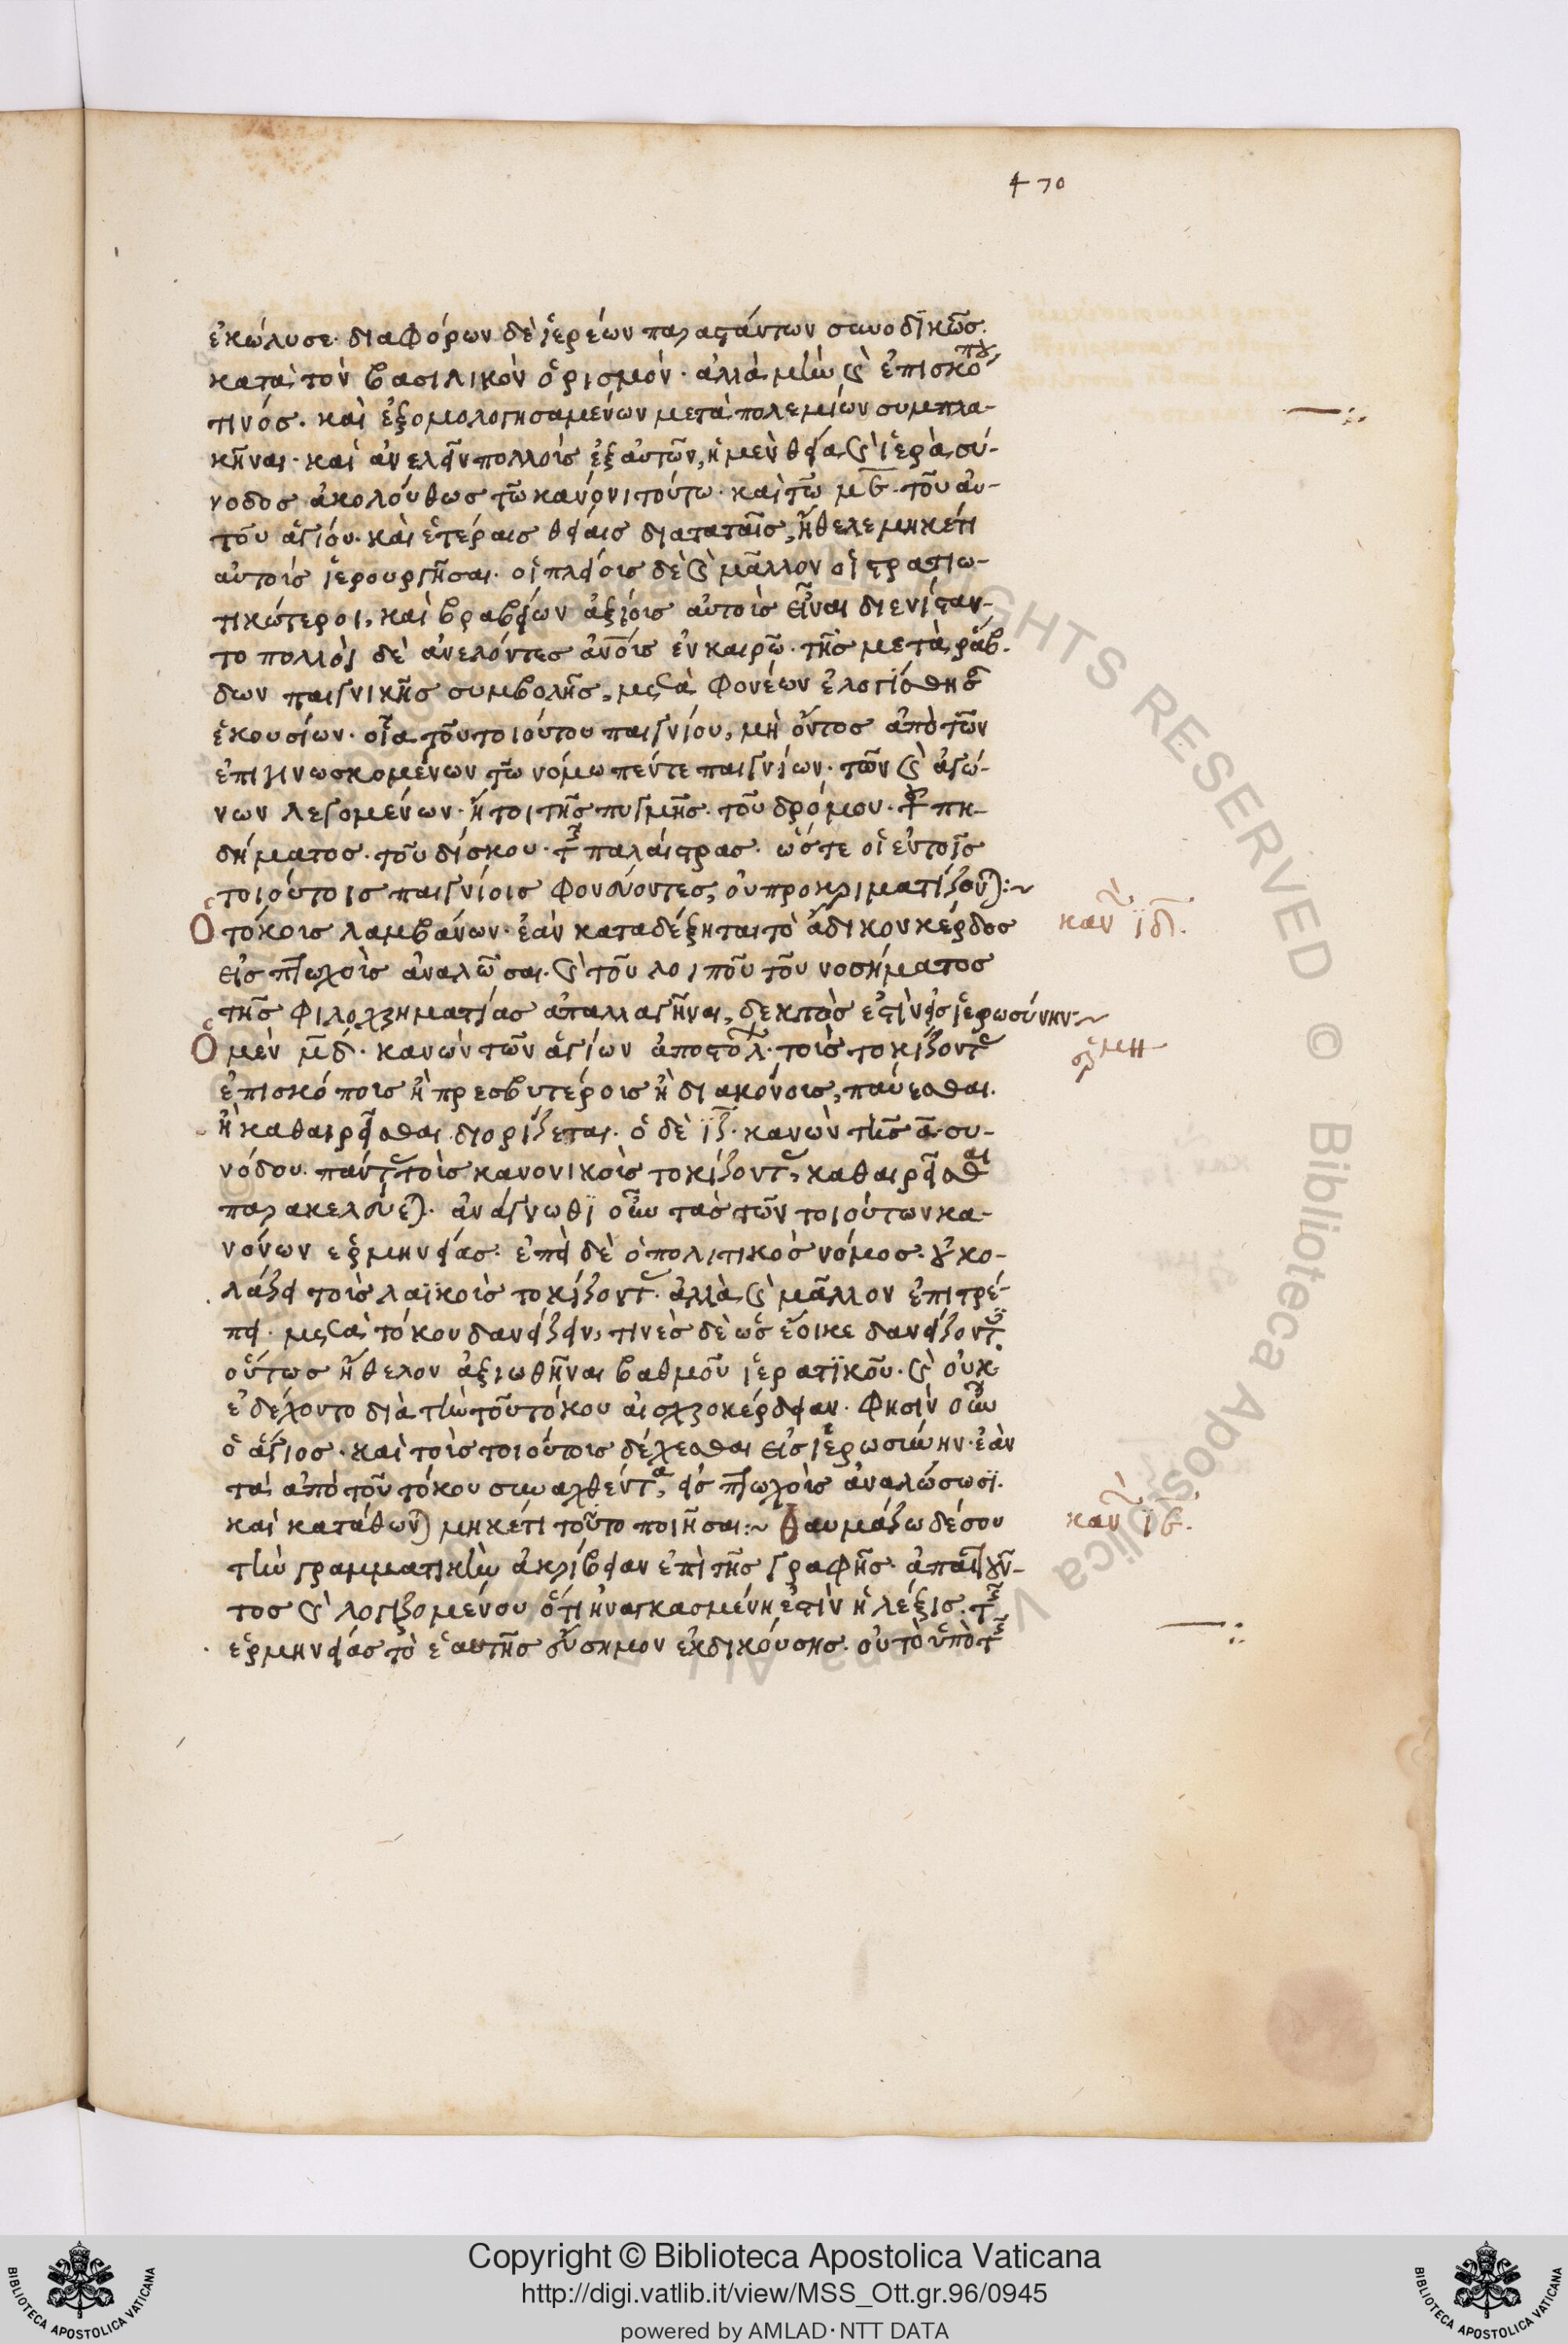 470
ἐκώλυσε· διαφόρων δὲ ἱερέων παραστάντων συνοδϊκῶς.
κατὰ τὸν βασιλικὸν ὁρισμόν· ἀλλὰ μὴν καὶ ἐπισκόπου
τινός· καὶ ἐξομολογησαμένων μετὰ πολεμίων συμπλα-
κῆναι· καὶ ἀνελεῖν πολλοὺς ἐξ αὐτῶν, ἡ μὲν θεία καὶ ἱερὰ σύ-
νοδος ἀκολούθως τῶ κανόνι τούτω· καὶ τῶ μγ̅· τοῦ αὐ-
τοῦ ἁγίου· καὶ ἑτέραις θείαις διαταγαῖς, ἤθελε μηκέτι
αὐτοὺς ἱερουργῆσαι· οἱ πλείους δὲ καὶ μᾶλλον οἱ στρατιω-
τικώτεροι, καὶ βραβείων ἀξίους αὐτοὺς εἶναι διενίσταν-
το πολλοὶ δὲ ἀνελόντες ἀνους ἐν καιρῶ· τῆς μετὰ ράβ-
δων παιγνικῆς συμβολῆς, μετὰ φονέων ἐλογίσθησαν
ἑκουσίων· οἷα τοῦ τοιούτου παιγνίου, μὴ ὄντος ἀπὸ τῶν
ἐπιγινωσκομένων τῶ νόμω πέντε παιγνίων· τῶν καὶ ἀγώ-
νων λεγομένων· ἤτοι τῆς πυγμῆς· τοῦ δρόμου· τοῦ πη-
δήματος· τοῦ δίσκου· τῆς παλαίστρας· ὥστε οἱ ἐν τοῖς
τοιούτοις παιγνίοις φονεύοντες, οὐ προκριματίζονται:~
Ὁ τόκους λαμβάνων· ἐὰν καταδέξηται τὸ ἄδικον κέρδος
καν ϊδ̅.
εἰς πτωχοὺς ἀναλῶσαι· καὶ τοῦ λοιποῦ τοῦ νοσήματος
τῆς φιλοχρηματίας ἀπαλλαγῆναι, δεκτός ἐστὶν εἰς ἱερωσύνην:~
Ὁ μὲν μ̅δ̅· κανὼν τῶν ἁγίων ἀποστόλ· τοὺς τοκίζοντας
ἑρμη
ἐπισκόπους ἢ πρεσβυτέρους ἢ διακόνους, παύεσθαι·
ἢ καθαιρεῖσθαι διορίζεται· ὁ δὲ ϊζ̅· κανὼν τῆς α̅· συ-
νόδου· πάντας τοὺς κανονικοὺς τοκίζοντας, καθαιρεῖσθαι
παρακελεύεται· ἀνάγνωθϊ οὖν τὰς τῶν τοιούτων κα-
νόνων ἑρμηνείας· ἐπεὶ δὲ ὁ πολιτικὸς νόμος· οὐ κο-
λάζει τοὺς λαϊκοὺς τοκίζοντας· ἀλλὰ καὶ μᾶλλον ἐπιτρέ-
πει· μετὰ τόκου δανείζειν, τινὲς δὲ ὡς ἔοικε δανείζοντες
οὕτως ἤθελον ἀξιωθῆναι βαθμοῦ ἱερατϊκοῦ· καὶ οὐκ
ἐδέχοντο διὰ τὴν τοῦ τόκου αἰσχροκέρδειαν· φησὶν οὖν
ὁ ἅγιος· καὶ τοὺς τοιούτους δέχεσθαι εἰς ἱερωσύνην· ἐὰν
τὰ ἀπὸ τοῦ τόκου συναχθέντα, εἰς πτωχοὺς ἀναλώσωσϊ·
καὶ κατάθωνται μηκέτι τοῦτο ποιῆσαι:~ Θαυμάζω δέ σου
καν ϊε̅.
τὴν γραμματικὴν ἀκρίβειαν ἐπὶ τῆς γραφῆς· ἀπαιτοῦν-
τος καὶ λογιζομένου ὅτι ἠναγκασμένη ἐστὶν ἡ λέξις· τῆς
ἑρμηνείας τὸ ἑαυτῆς εὔσημον ἐκδικούσης· οὐ τὸ ὑπὸ τῆς
Copyright © Biblioteca Apostolica Vaticana
http://digi.vatlib.it/view/MSS_Ott.gr.96/0945
powered by AMLAD·NTT DATA